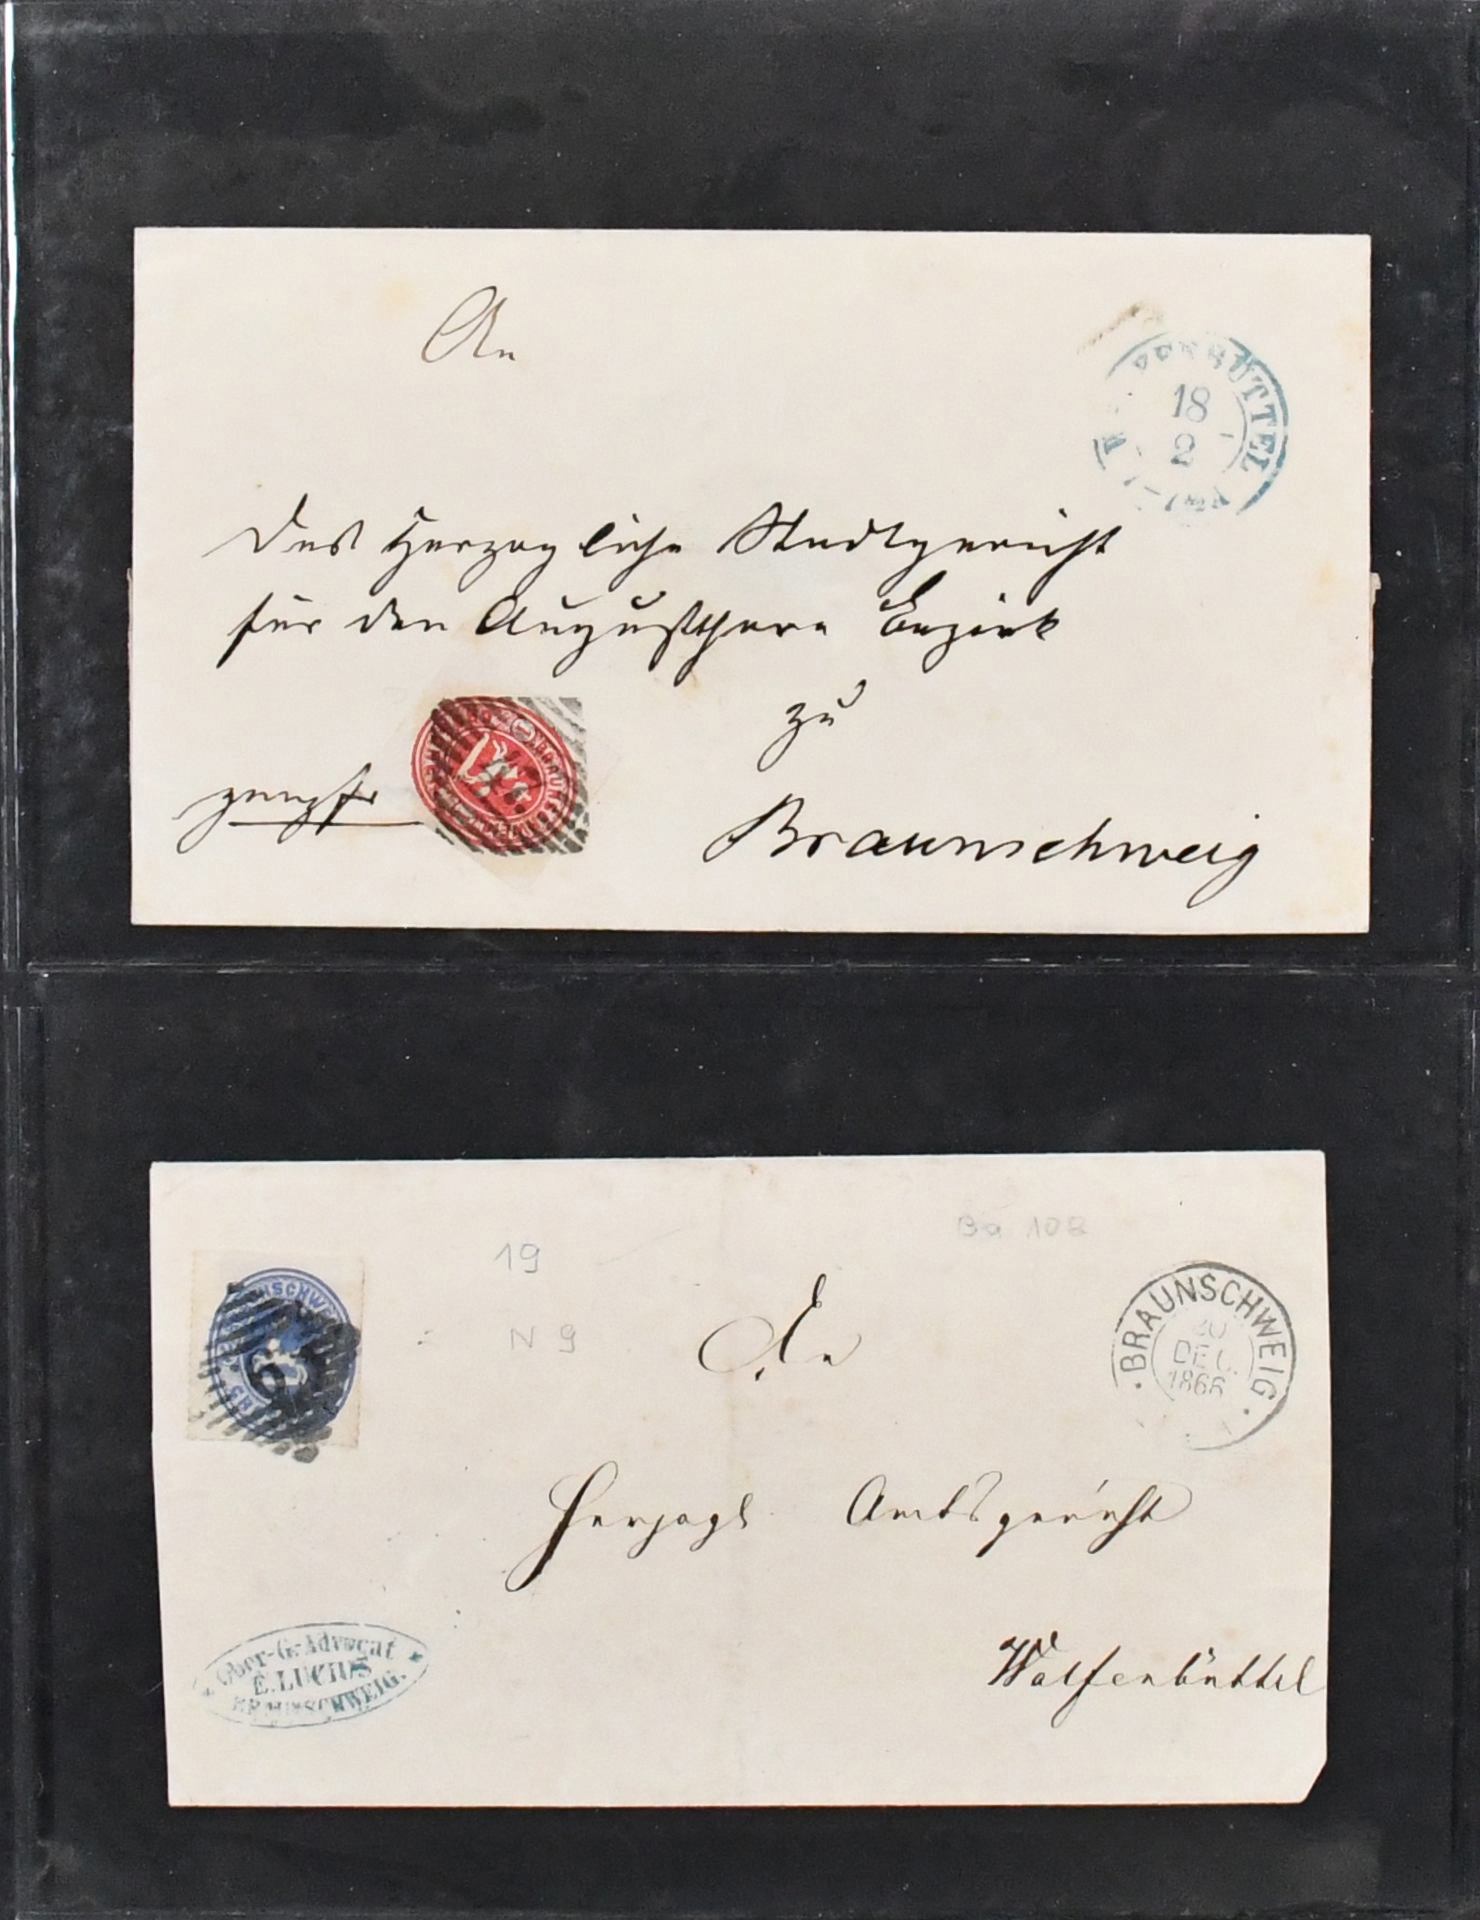 An
Das Herzogliche Stadtgericht
für den Augustthore Bezirk
zu
Braunschweig
BÜTTEL
18
2
19
Ba 108
N 9
An
BRAUNSCHWEIG
20
DEC.
1866
Herzogl Amtsgericht
Wolfenbüttel
Ober-G-Advocat
E. LUCIUS
BRAUNSCHWEIG.